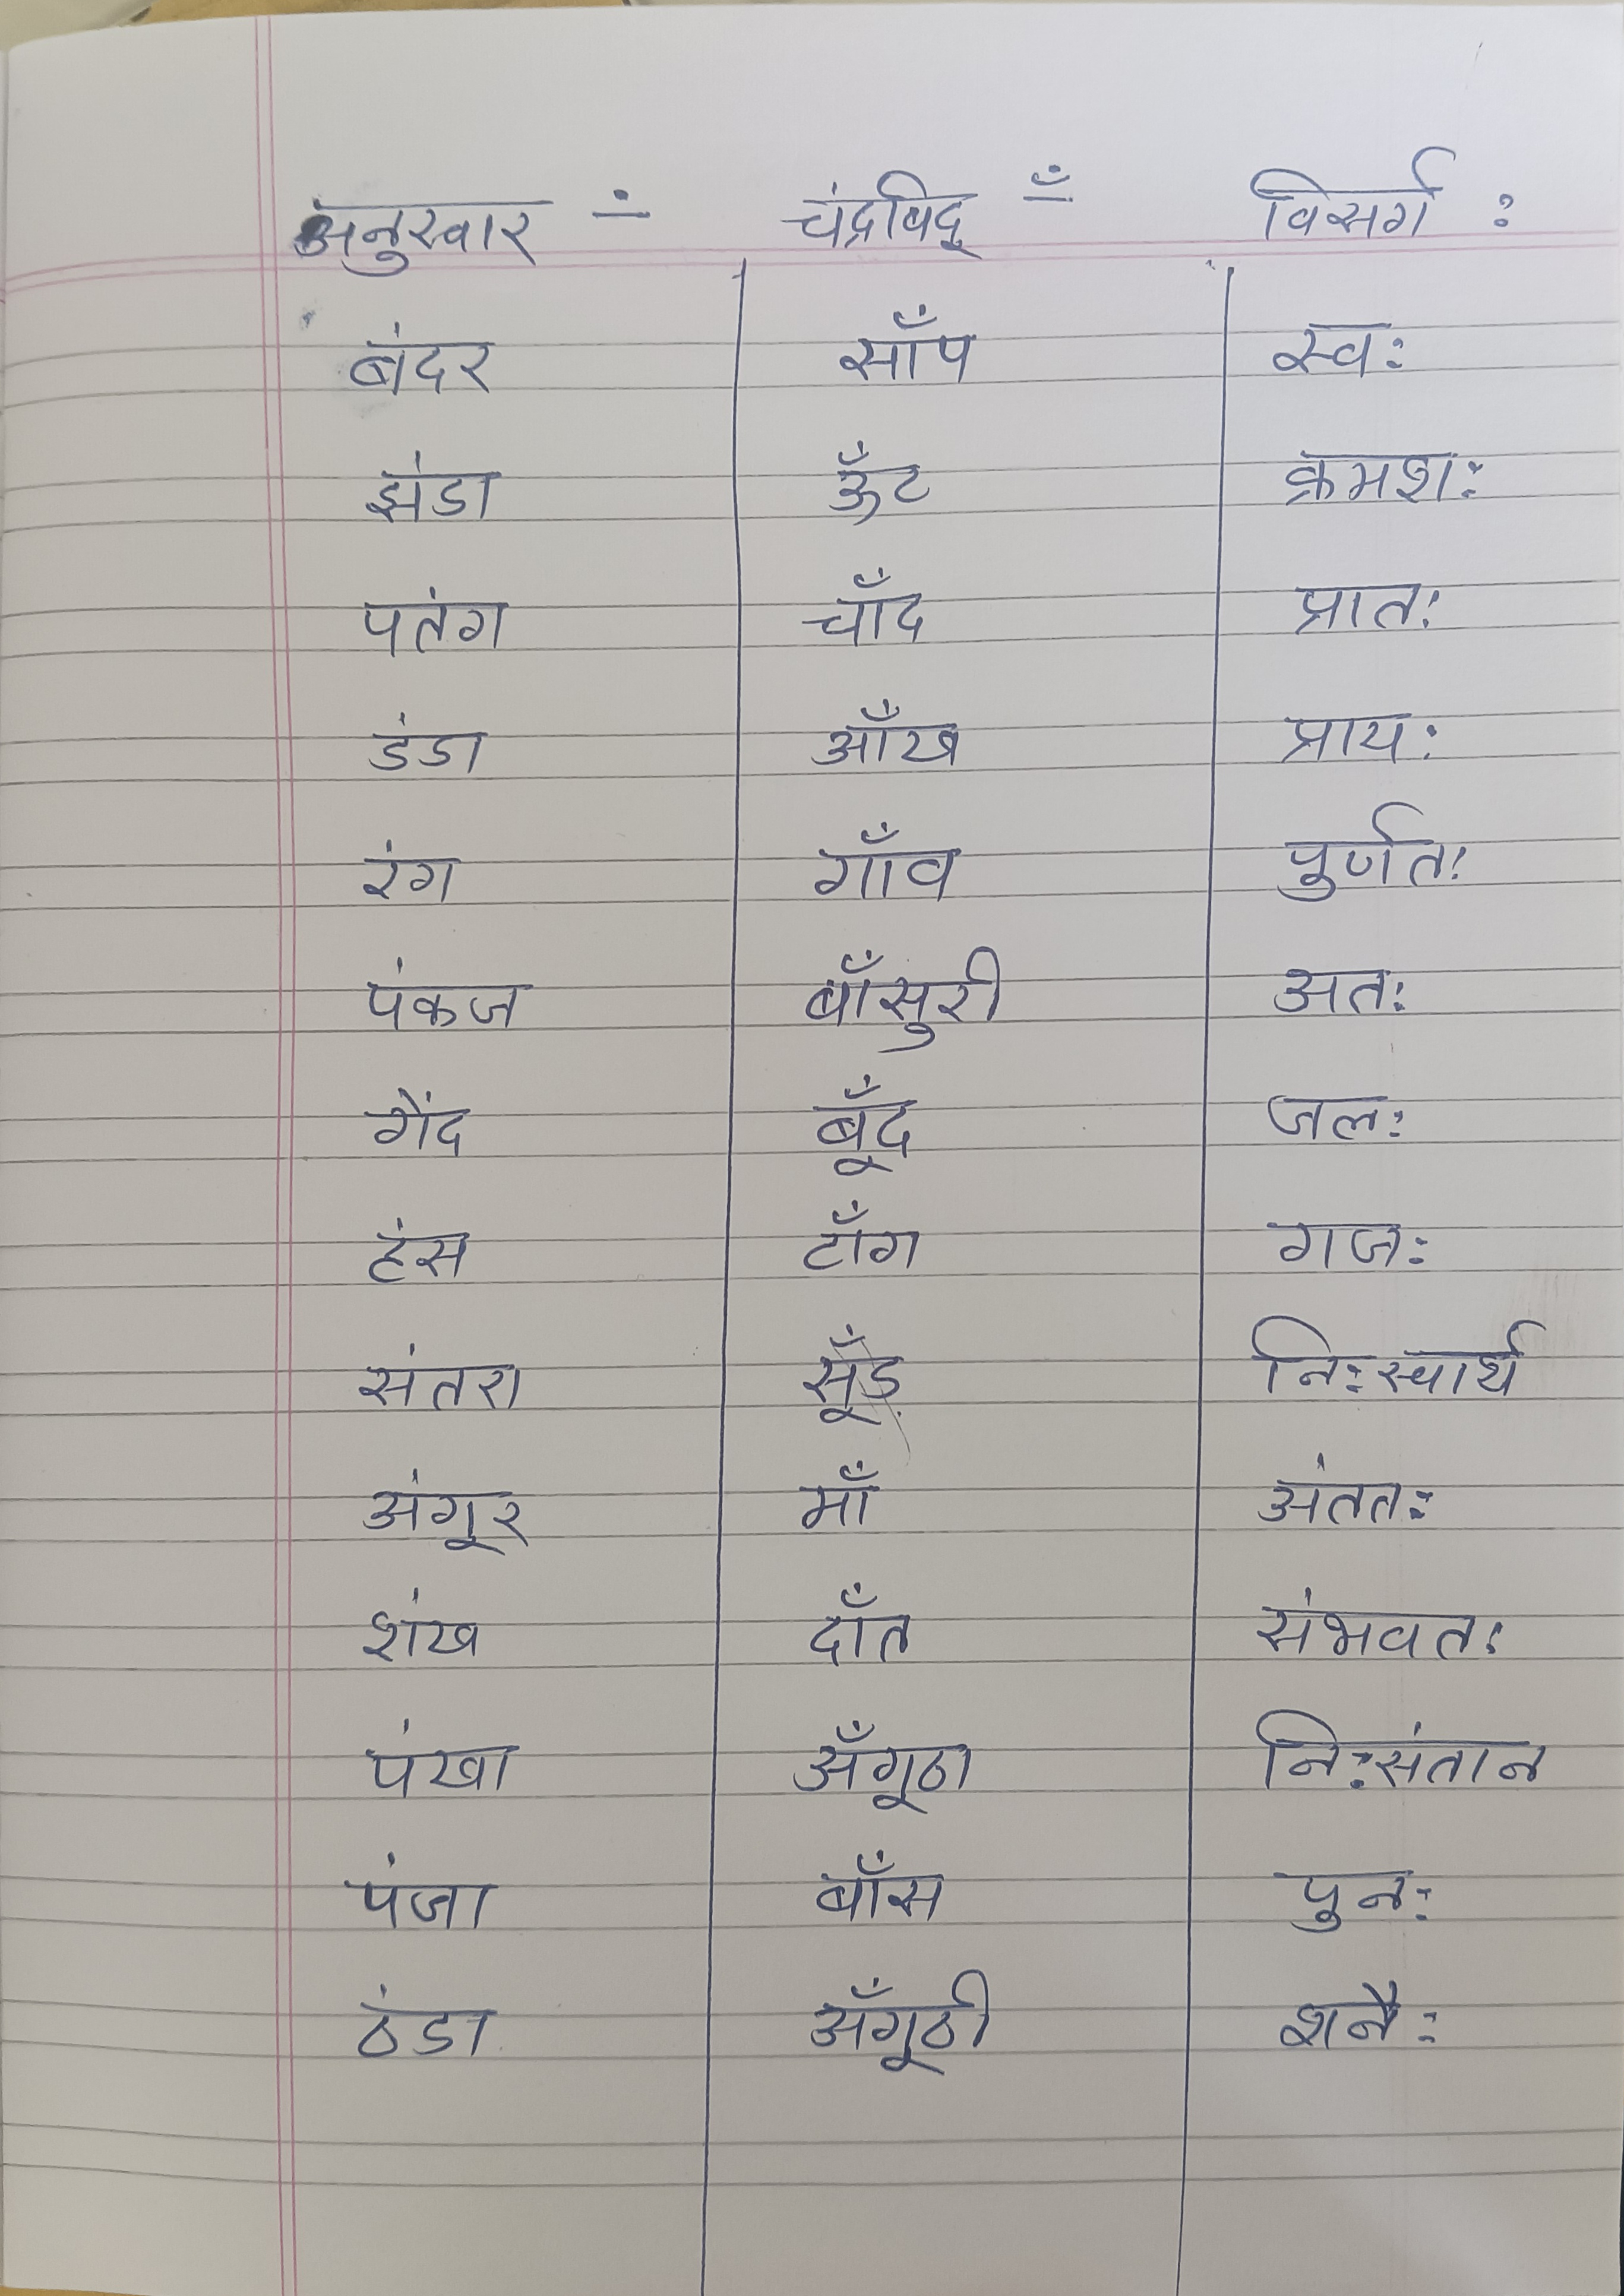 अनुस्वार ∸ चंद्रबिदू ँ विसर्ग :
बंदर साँप स्व:
झंडा ऊँट क्रमश:
पतंग चाँद प्रात:
डंडा आँख प्राय:
रंग गाँव पुर्णत:
पंकज बाँसुरी अत:
गेंद बूँद जल:
हंस टाँग गज:
संतरा सूँड़ नि:स्वार्थ
अंगूर माँ अंतत:
शंख दाँत संभवत:
पंखा अँगूठा नि:संतान
पंजा बाँस पुन:
ठंडा अँगूठी शनै: